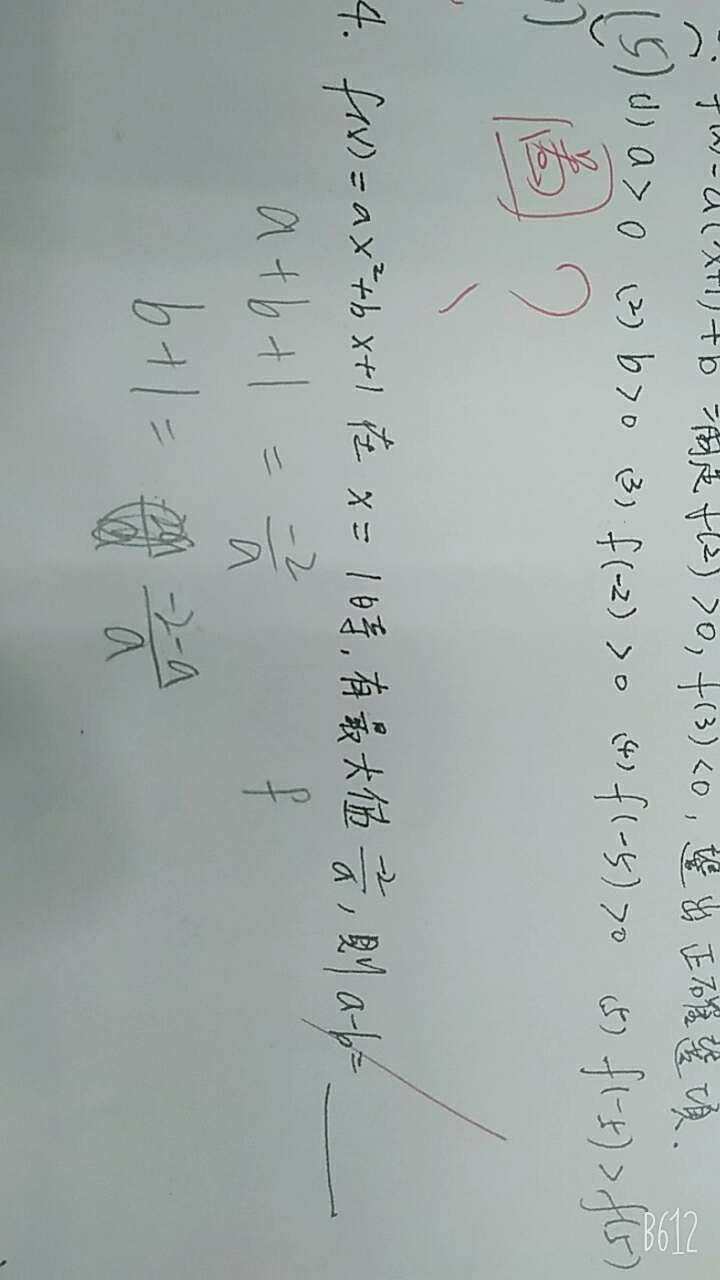 f(x)=a(x+1)+b 滿足 f(2)>0, f(3)<0, 選出正確選項.
(5) (1) a>0 (2) b>0 (3) f(-2)>0 (4) f(-5)>0 (5) f(-5)>f(5)
?
4. f(x)=ax²+bx+1 在 x=1時,有最大值 -2/a, 則 a-b=
a+b+1 = -2/a f
b+1 = -2-a/a
B612